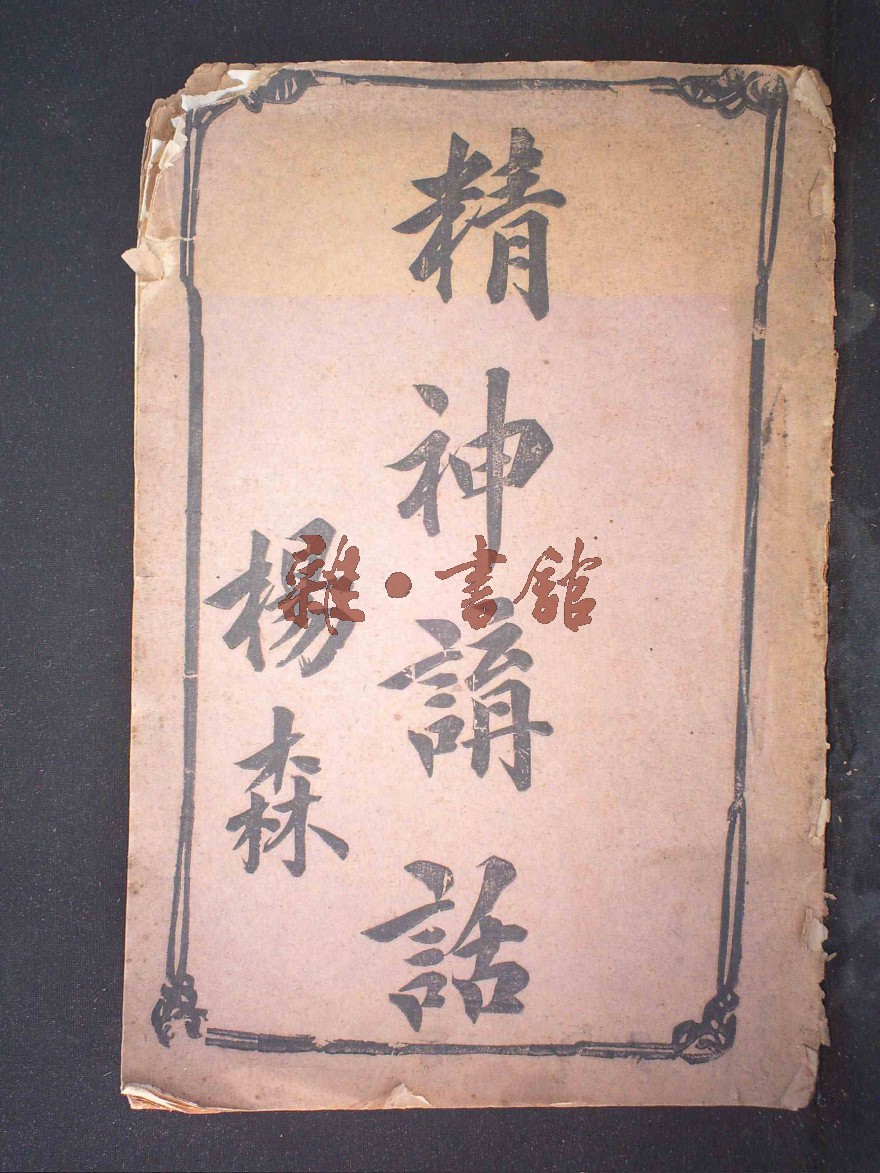 精神講話
楊森
雜·書館